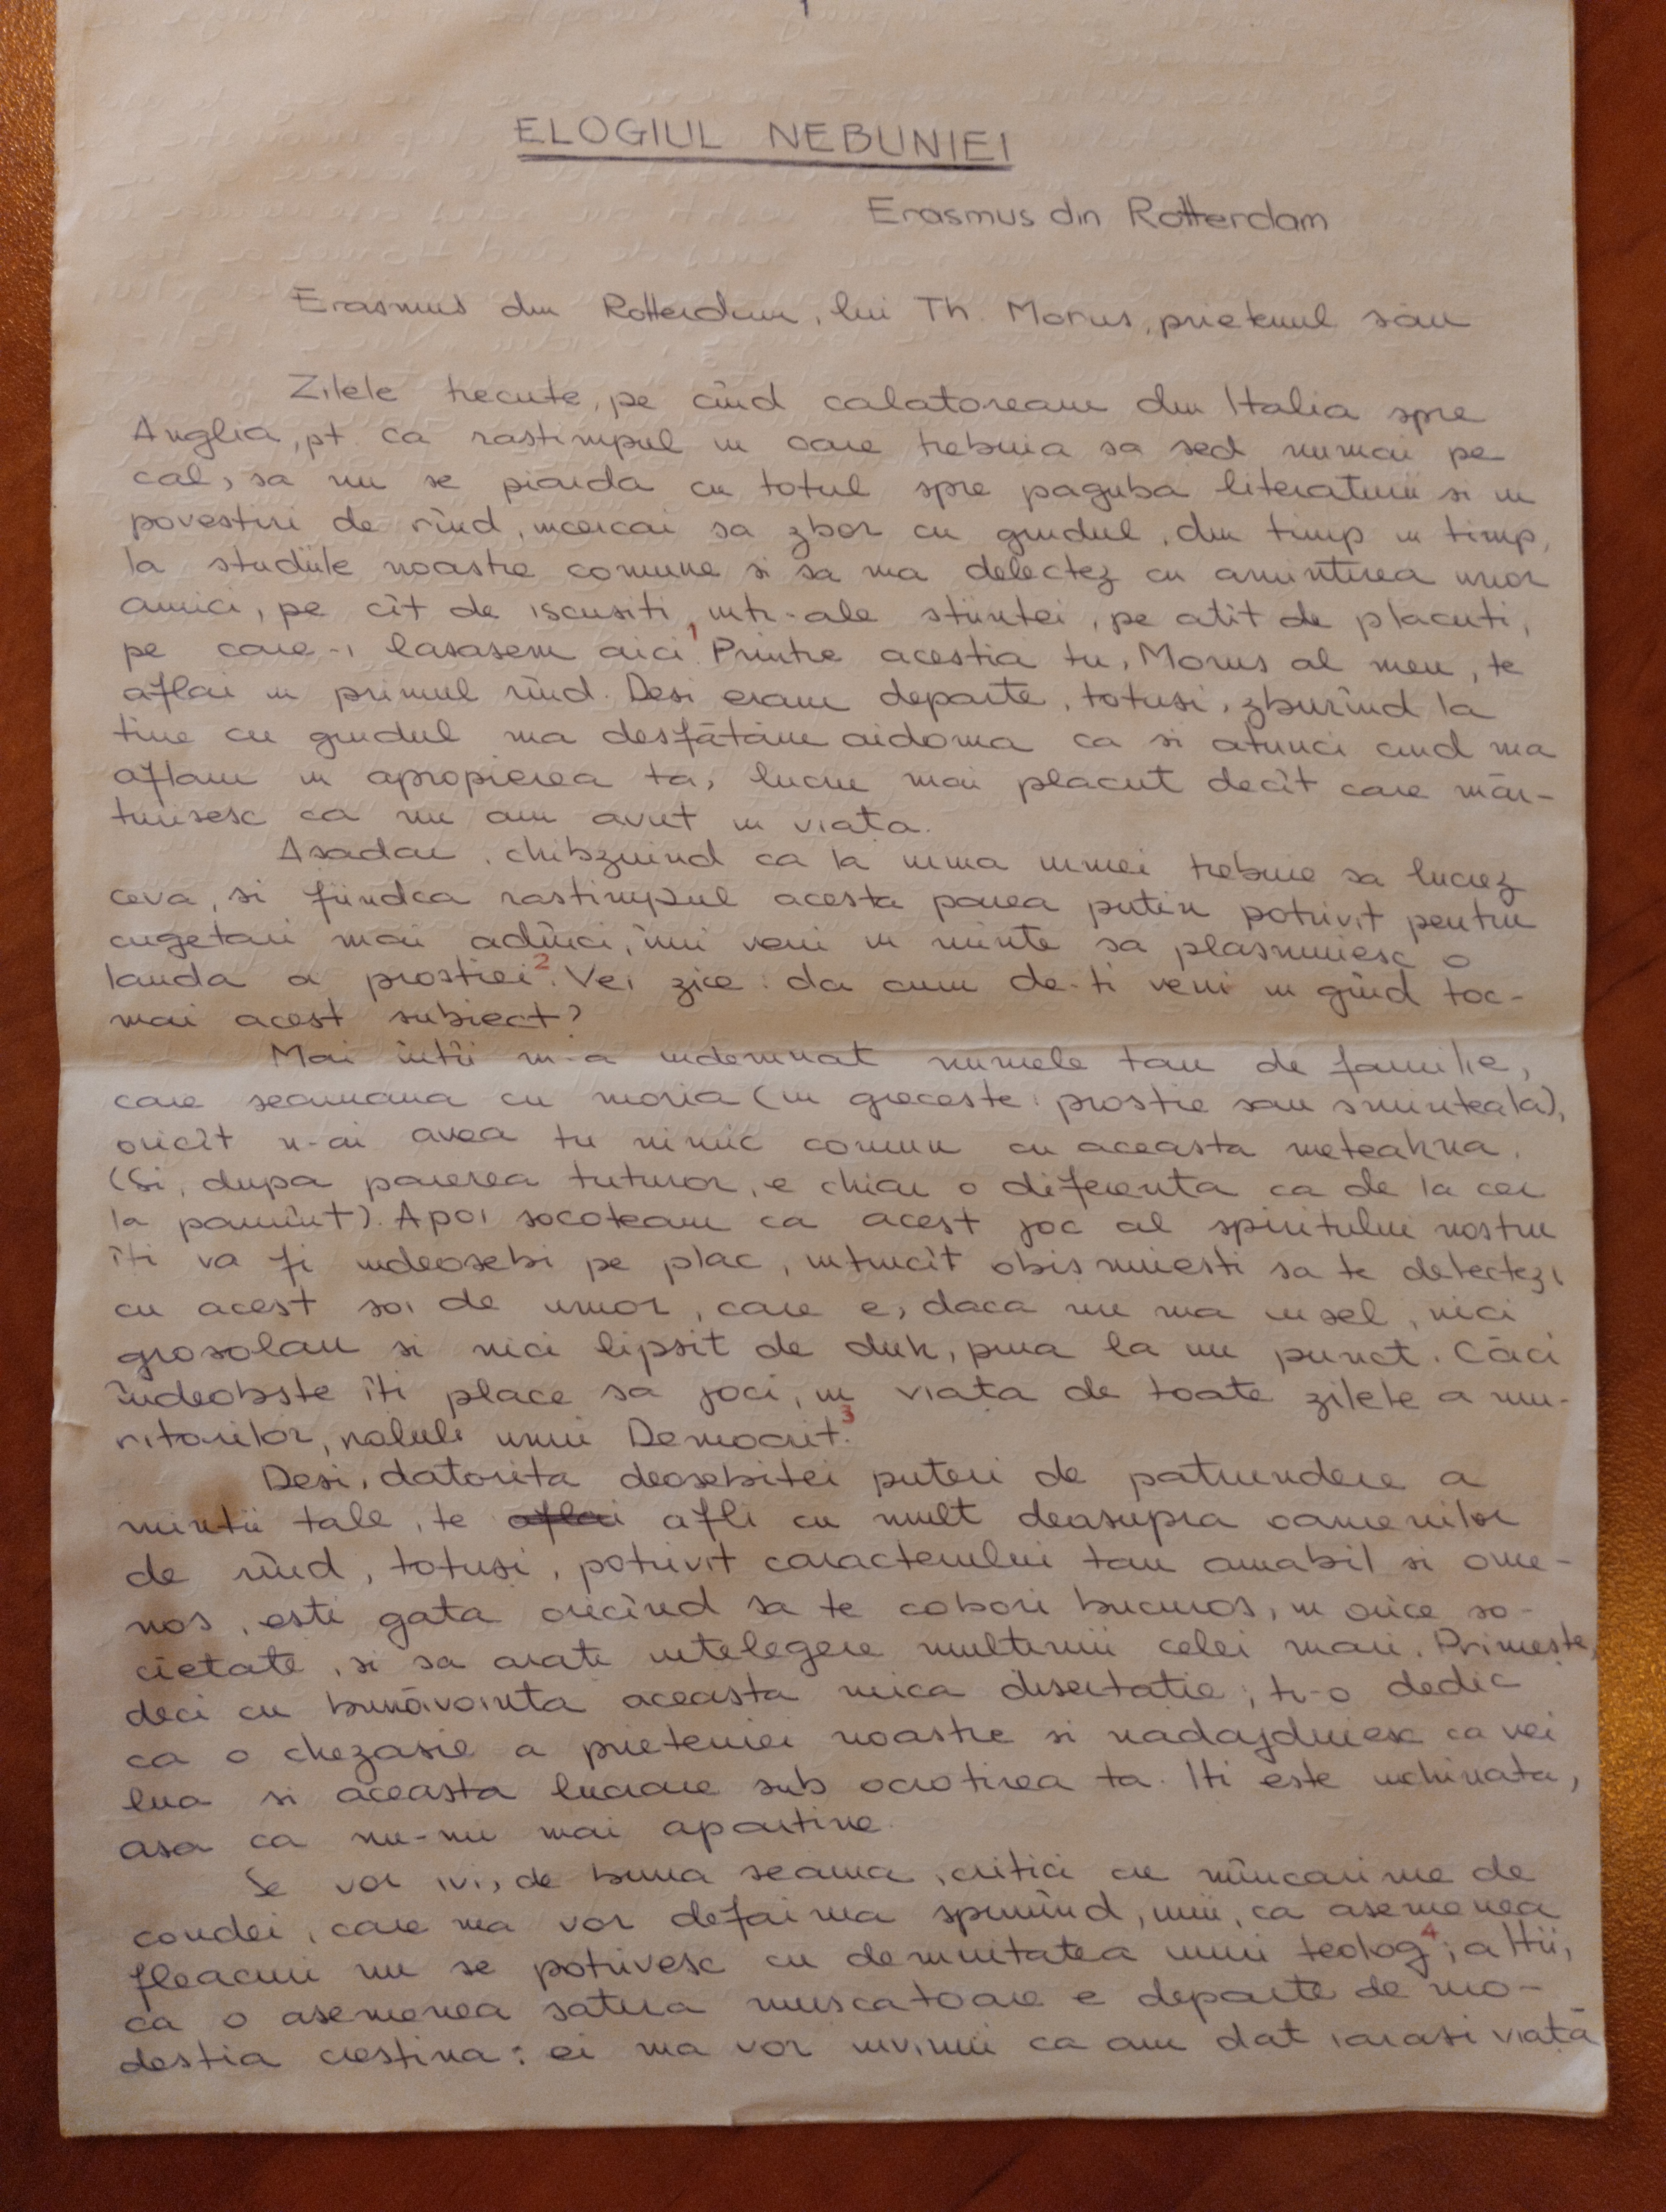 ELOGIUL NEBUNIEI
Erasmus din Rotterdam
Erasmus din Rotterdam, lui Th. Morus, prietenul sau
Zilele trecute, pe cînd calatoream din Italia spre
Anglia, pt. ca rastimpul in care trebuia sa sed numai pe
cal, sa nu se piarda cu totul spre paguba literaturii si in
povestiri de rînd, incercai sa zbor cu gindul, din timp in timp,
la studiile noastre comune si sa ma delectez cu amintirea unor
amici, pe cît de iscusiti, intr-ale stiintei, pe atît de placuti,
pe care-i lasasem aici.1 Printre acestia tu, Morus al meu, te
aflai in primul rînd. Desi eram departe, totusi, zburînd la
tine cu gindul ma desfătăm aidoma ca si atunci cind ma
aflam in apropierea ta, lucru mai placut decît care măr-
turisesc ca nu am avut in viața.
Asadar, chibzuind ca la urma urmei trebuie sa lucrez
ceva, si fiindca rastimpul acesta parea putin potrivit pentru
cugetari mai adînci, îmi veni in minte sa plasmuiesc o
lauda a prostiei2. Vei zice: da cum de-ti veni in gînd toc-
mai acest subiect?
Mai întîi m-a indemnat numele tau de familie,
care seamana cu moria (in greceste: prostie sau sminteala),
oricît n-ai avea tu nimic comun cu aceasta meteahna.
(Si, dupa parerea tuturor, e chiar o diferenta ca de la cer
la pamînt). Apoi socoteam ca acest joc al spiritului nostru
îti va fi indeosebi pe plac, intrucît obisnuiesti sa te delectezi
cu acest soi de umor, care e, daca nu ma insel, nici
grosolan si nici lipsit de duh, pina la un punct. Căci
îndeobste îti place sa joci, in viața de toate zilele a mu-
ritorilor, rolul unui Democrit.3
Desi, datorita deosebitei puteri de patrundere a
mintii tale, te aflai afli cu mult deasupra oamenilor
de rînd, totuși, potrivit caracterului tau amabil si ome-
nos, esti gata oricînd sa te cobori bucuros, in orice so-
cietate, si sa arati intelegere multimii celei mari. Primește,
deci cu bunăvointa aceasta mica disertatie; ti-o dedic
ca o chezasie a prieteniei noastre si nadajduiesc ca vei
lua si aceasta lucrare sub ocrotirea ta. Iti este inchinata,
asa ca nu-mi mai apartine.
Se vor ivi, de buna seama, critici cu mîncarime de
condei, care ma vor defaima spunînd, unii, ca asemenea
fleacuri nu se potrivesc cu demnitatea unui teolog4; altii,
ca o asemenea satira muscatoare e departe de mo-
destia crestina: ei ma vor invinui ca am dat iarasi viață